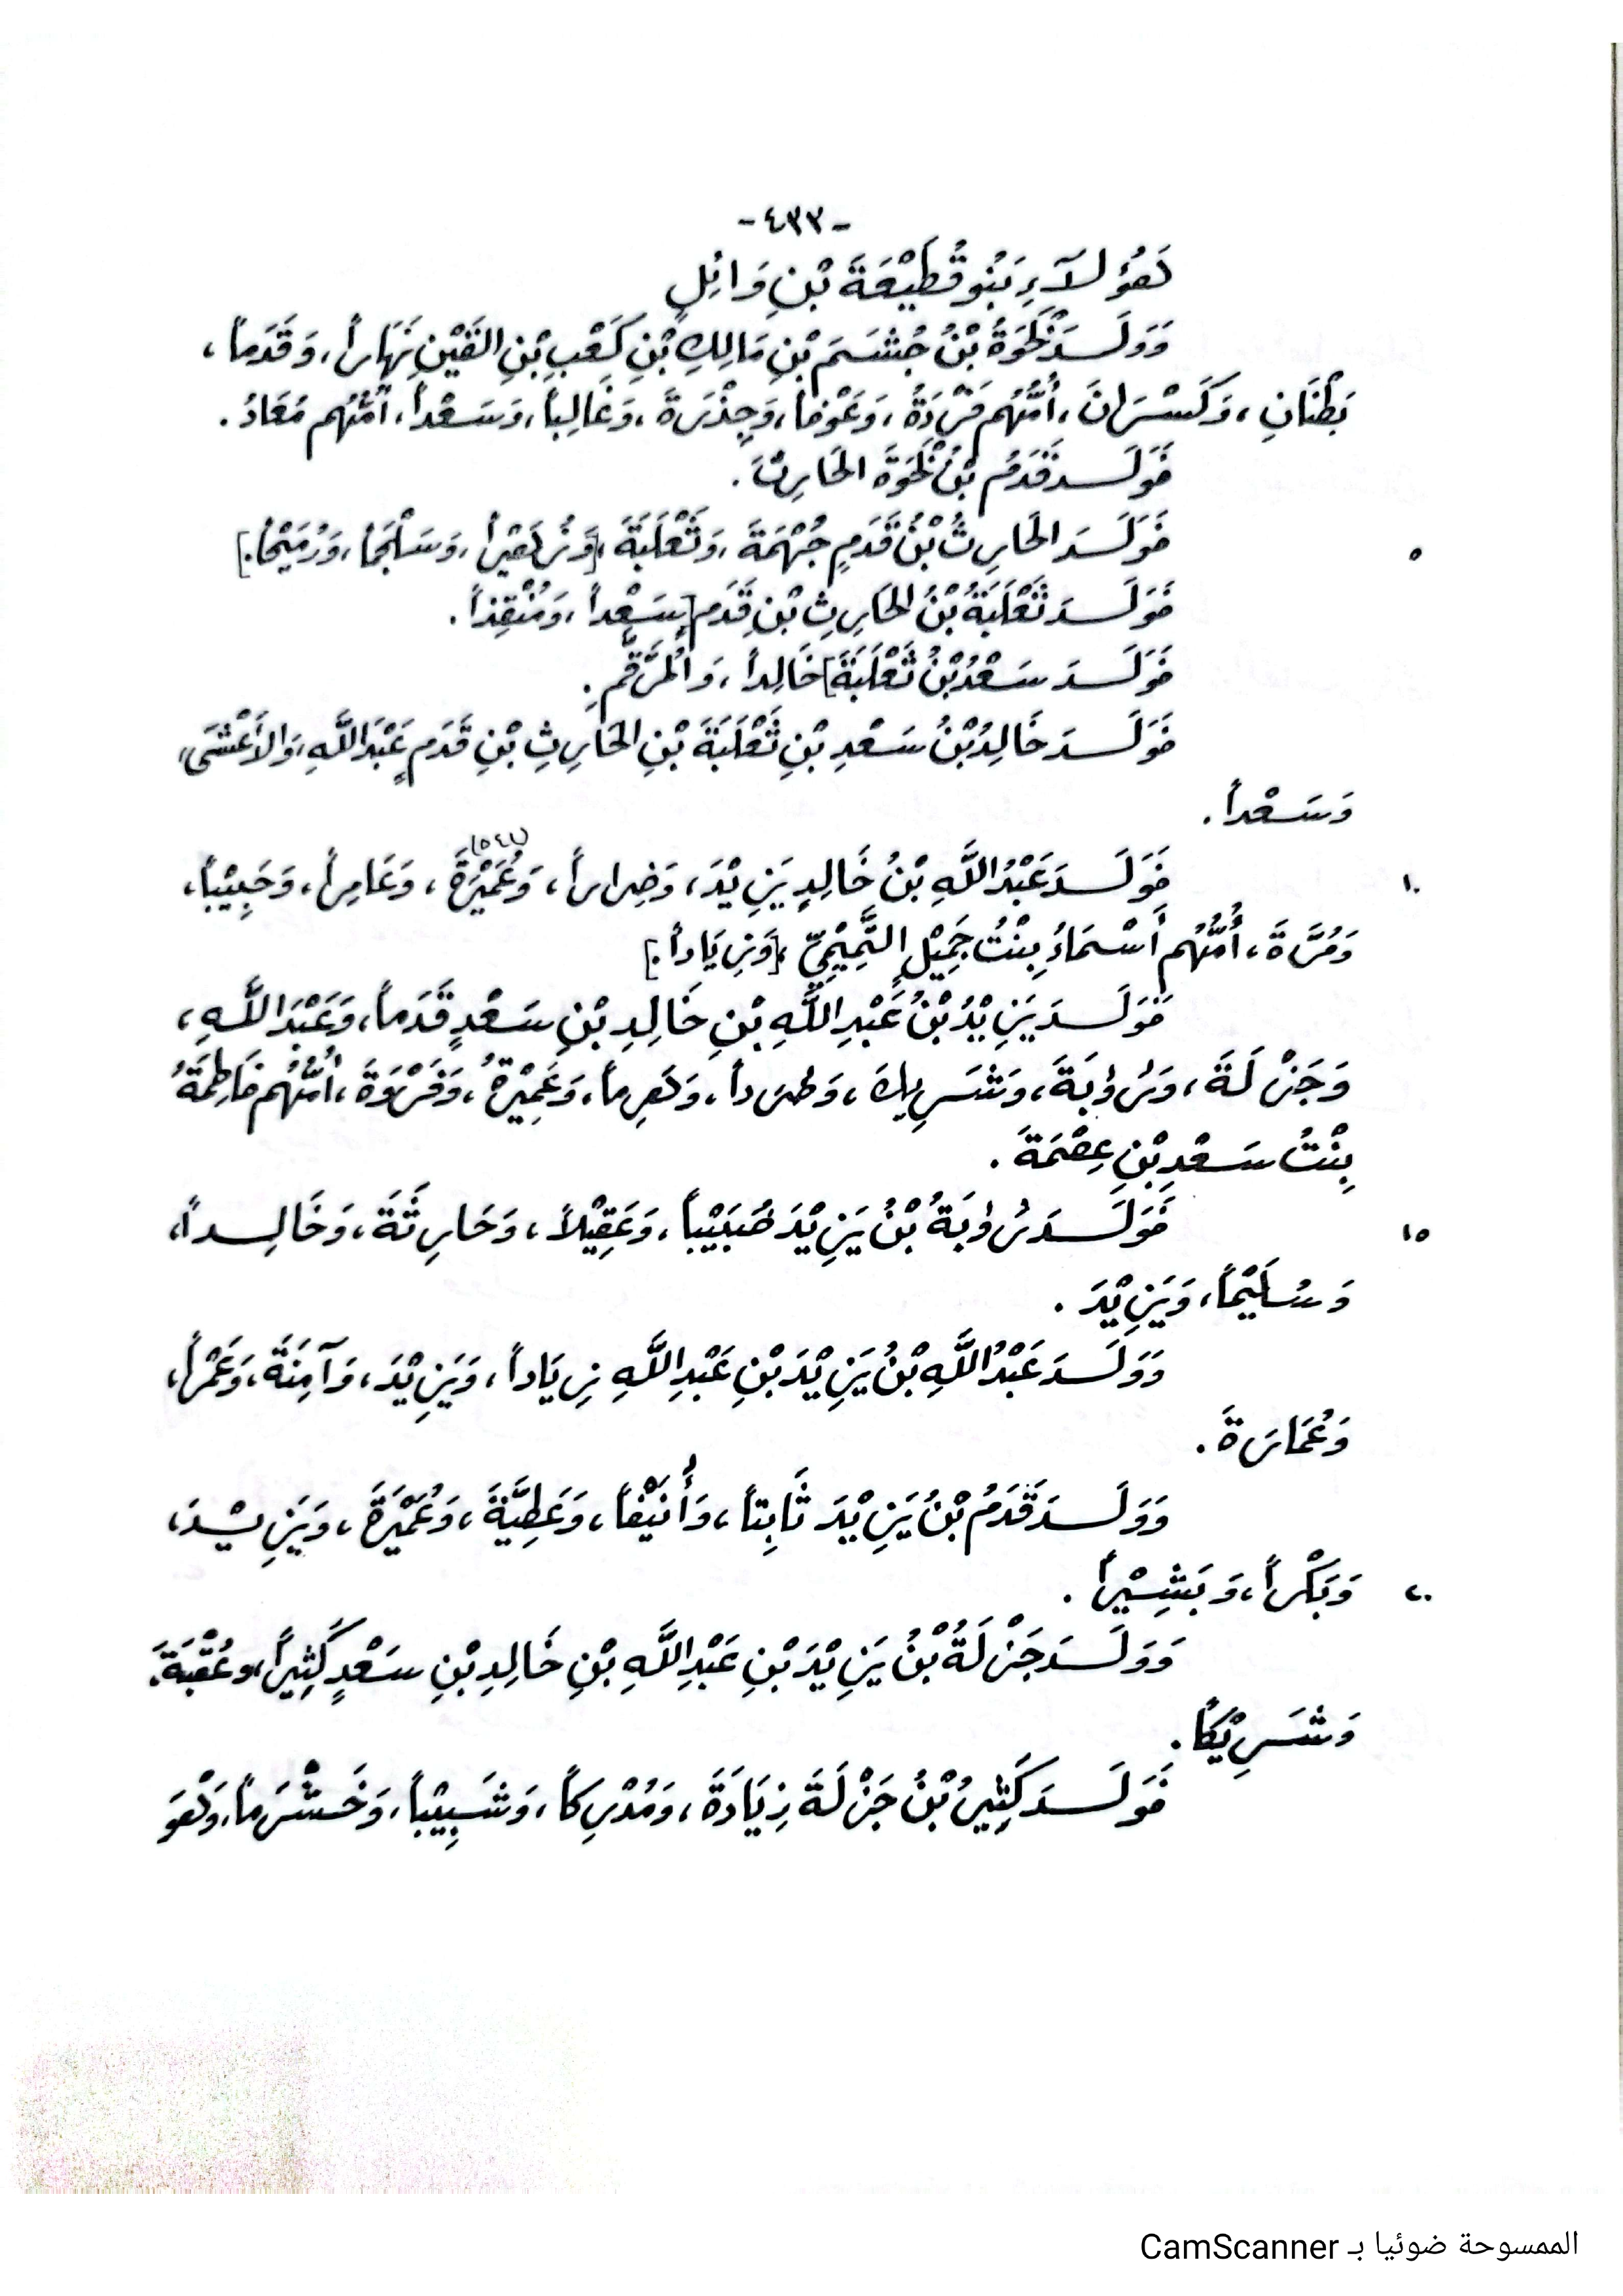 -٤٣٣-
هَؤُلَاءِ بَنُو قُطَيْعَةَ بْنِ وَائِلٍ
وَوَلَدَ نَخْوَةُ بْنُ جُشَمَ بْنِ مَالِكِ بْنِ كَعْبِ بْنِ القَيْنِ نَهَاراً، وَقَدَماً،
بَطْنَانِ، وَكَسْرَانَ، أُمُّهُم فَرْدَةُ، وَعَوْفاً، وَجِذْرَةَ، وَغَالِباً، وَسَعْداً، أُمُّهُم مُعَادُ.
فَوَلَدَ قَدَمُ بْنُ نَخْوَةَ الحَارِثَ.
فَوَلَدَ الحَارِثُ بْنُ قَدَمٍ جُهْمَةَ، وَثَعْلَبَةَ، [وَزُهَيْراً، وَسَلْجَماً، وَرُمَيْحاً.]
٥
فَوَلَدَ ثَعْلَبَةُ بْنُ الحَارِثِ بْنِ قَدَمٍ [سَعْداً، وَمُنْقِذاً.
فَوَلَدَ سَعْدُ بْنُ ثَعْلَبَةَ] خَالِداً، وَالمُرَقَّمَ.
فَوَلَدَ خَالِدُ بْنُ سَعْدِ بْنِ ثَعْلَبَةَ بْنِ الحَارِثِ بْنِ قَدَمٍ عَبْدَاللَّهِ، وَالأَعْشَى،
وَسَعْداً.
فَوَلَدَ عَبْدُ اللَّهِ بْنُ خَالِدٍ يَزِيْدَ، وَضِرَاراً، وَعُمَيْرَةَ، وَعَامِراً، وَحَبِيْباً،
١٠
وَمُرَّةَ، أُمُّهُم أَسْمَاءُ بِنْتُ جَمِيْلٍ التَّمِيْمِيِّ، [وَزِيَاداً.]
فَوَلَدَ يَزِيْدُ بْنُ عَبْدِ اللَّهِ بْنِ خَالِدِ بْنِ سَعْدٍ قَدَماً، وَعَبْدَ اللَّهِ،
وَجَزْلَةَ، وَرُؤْبَةَ، وَشَرِيكَ، وَطَرداً، وَهَرِماً، وَعَمِيْرَةُ، وَفَرْوَةَ، أُمُّهُم فَاطِمَةُ
بِنْتُ سَعْدِ بْنِ عِصْمَةَ.
فَوَلَدَ رُؤْبَةُ بْنُ يَزِيْدَ ضُبَيْباً، وَعَقِيْلاً، وَحَارِثَةَ، وَخَالِداً،
١٥
وَسُلَيْماً، وَيَزِيْدَ.
وَوَلَدَ عَبْدُ اللَّهِ بْنُ يَزِيْدَ بْنِ عَبْدِ اللَّهِ زِيَاداً، وَيَزِيْدَ، وَآمِنَةَ، وَعَمْراً،
وَعُمَارَةَ.
وَوَلَدَ قَدَمُ بْنُ يَزِيْدَ ثَابِتاً، وَأُنَيْفاً، وَعَطِيَّةَ، وَعُمَيْرَةَ، وَيَزِيْدَ،
وَبَكْراً، وَبَشِيْراً.
٢٠
وَوَلَدَ جَزْلَةُ بْنُ يَزِيْدَ بْنِ عَبْدِ اللَّهِ بْنِ خَالِدِ بْنِ سَعْدٍ كَثِيراً، وعُقْبَةَ،
وَشَرِيْكاً.
فَوَلَدَ كَثِيرُ بْنُ جَزْلَةَ زِيَادَةَ، وَمُدْرِكاً، وَشَبِيْباً، وَخَشْرَماً، وَهُوَ
الممسوحة ضوئيا بـ CamScanner